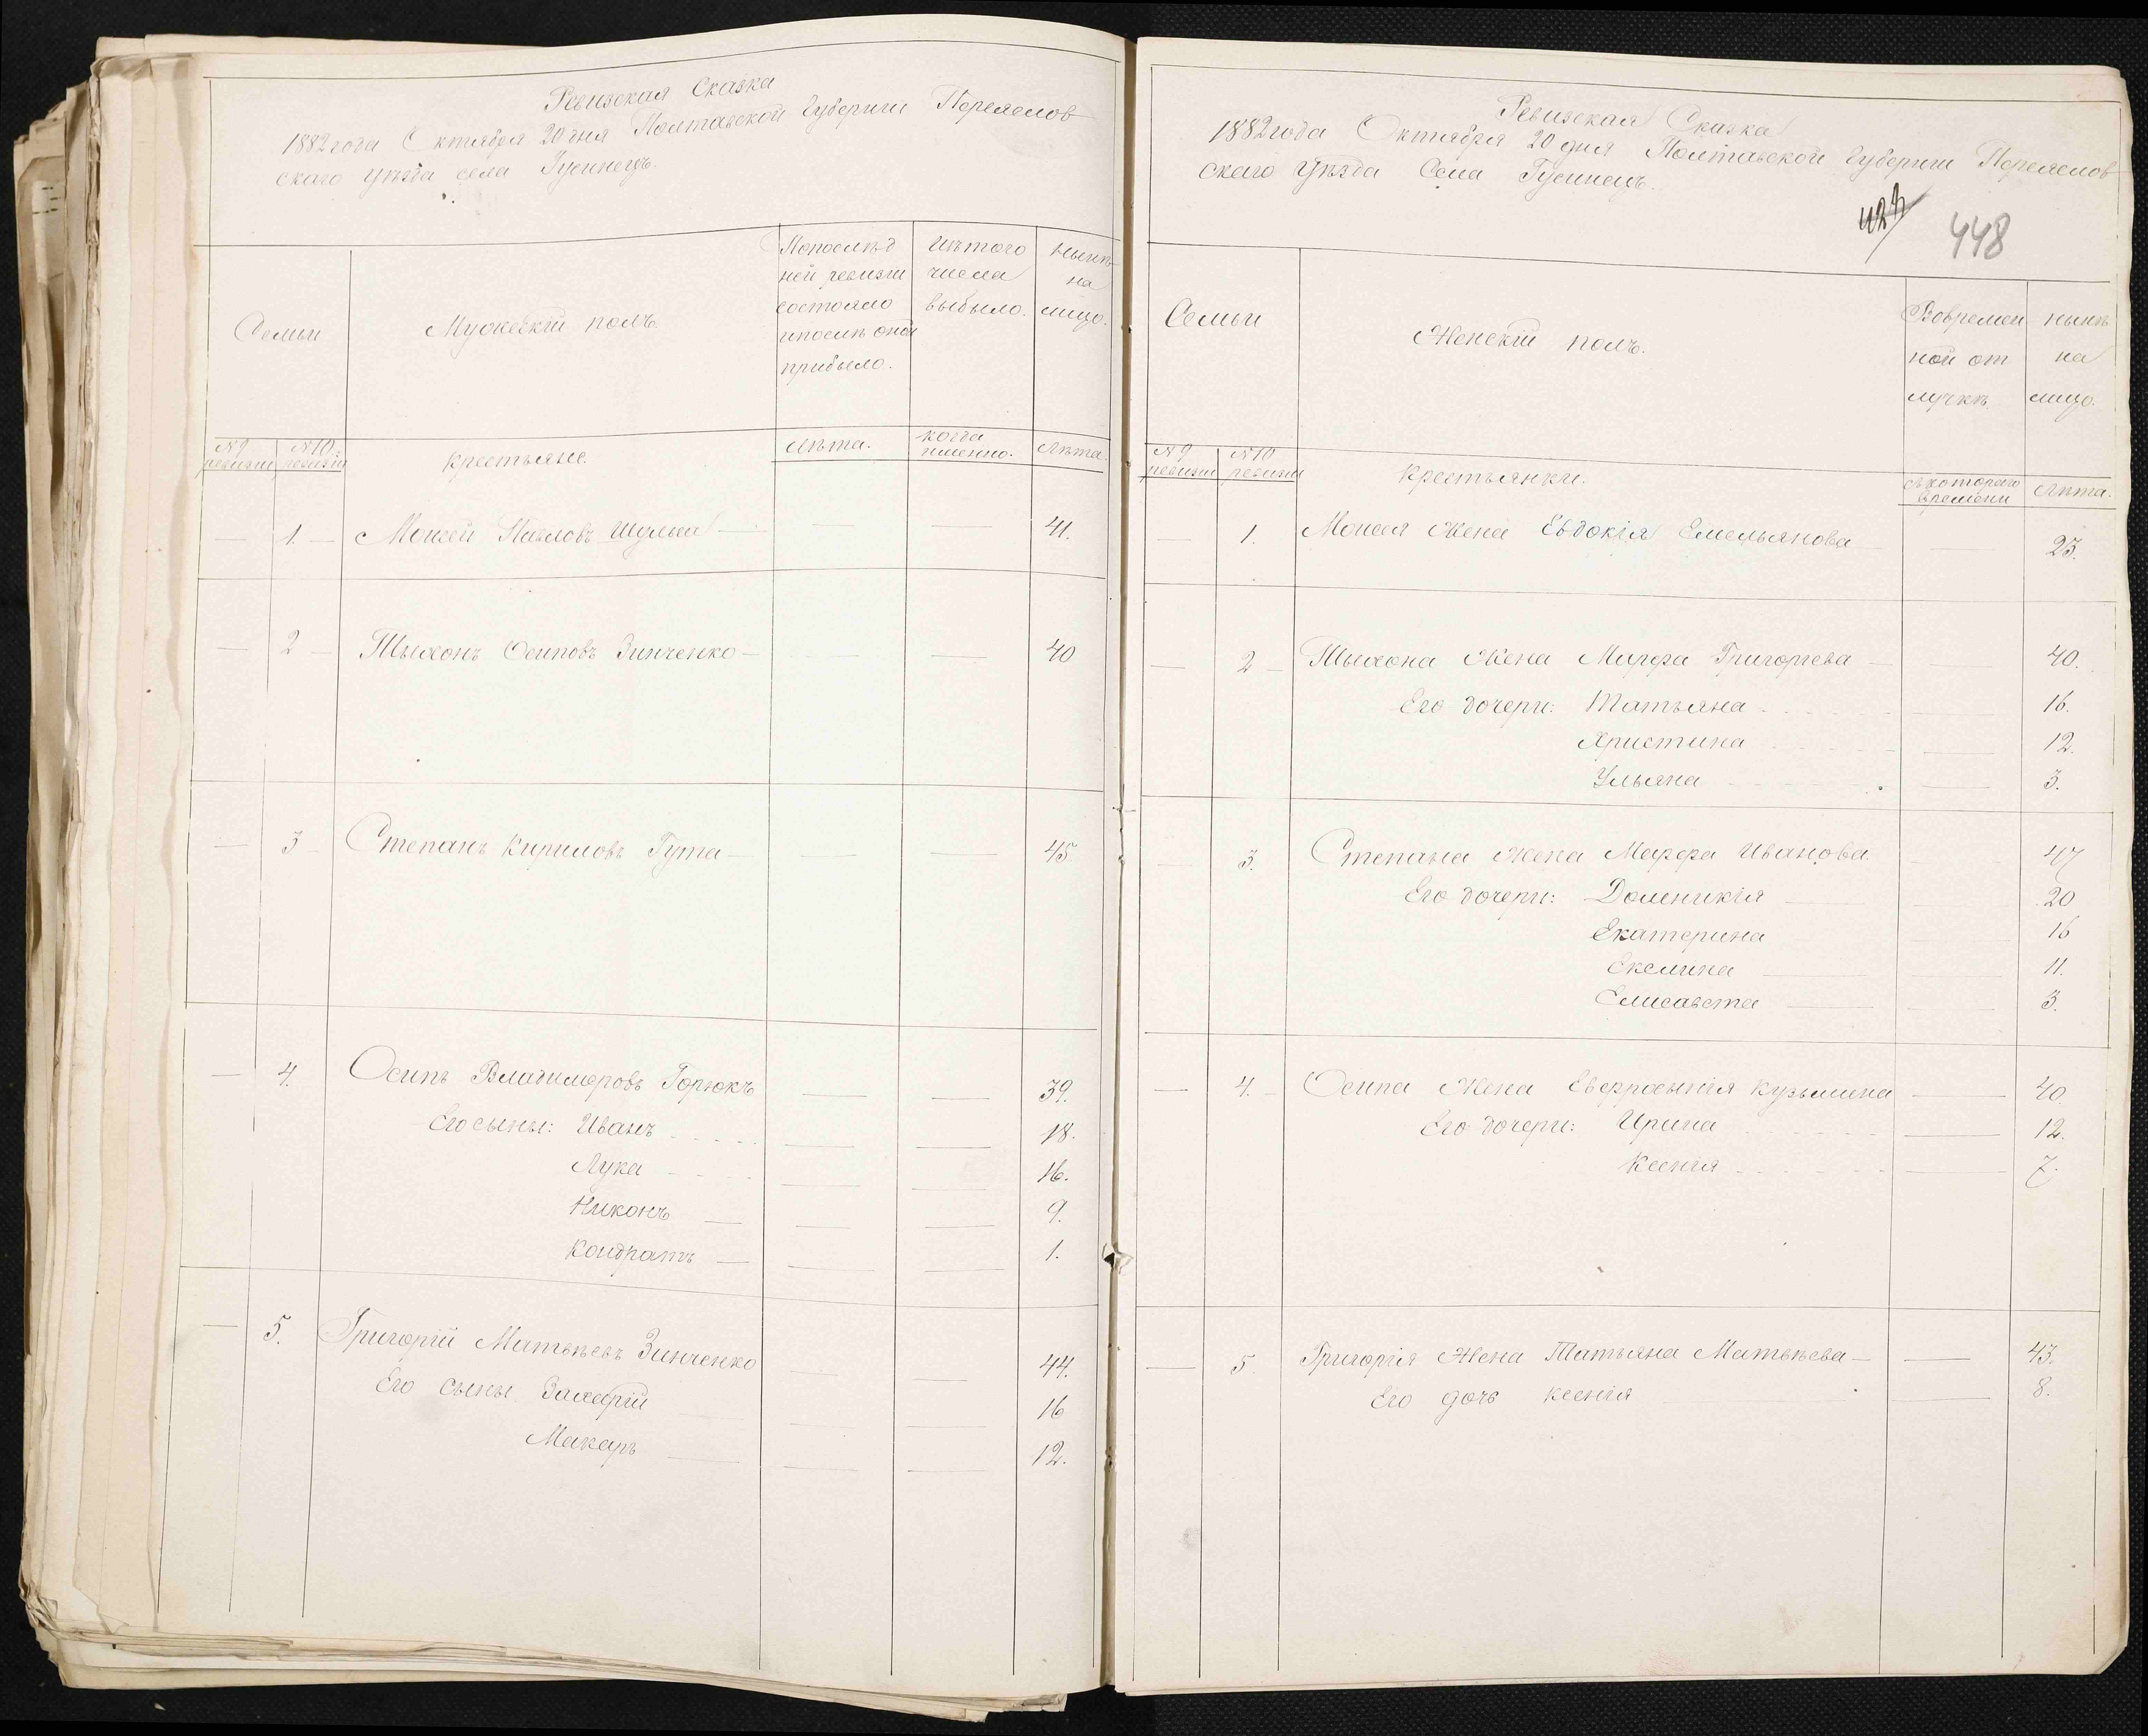 Ревизская Сказка
1882 года Октября 20 дня Полтавской Губернии Переяслов
скаго уѣзда села Гусинецъ.
Семьи
Мужескій полъ.
Попослѣд
ней ревизіи
состояло
ипослѣ оной
прибыло.
Изтого
числа
выбыло.
Нынѣ
на
лицо.
№9 ревизіи
№10 ревизіи
Крестьяне.
Лѣта.
когда
именно.
Лѣта.
1. Моисей Павловъ Шульга 41.
2 Тыхонъ Осиповъ Зинченко 40
3 Степанъ Кириловъ Гута 45
4. Осипъ Владимеровъ Горюкъ 39.
Его сыны: Иванъ 18.
Лука 16.
Никонъ 9.
Кондратъ 1.
5. Григорій Матвѣевъ Зинченко 44.
Его сыны Захарій 16
Макаръ 12.
Ревизская Сказка
1882 года Октября 20 дня Полтавской Губерніи Переяслов
скаго Уѣзда Села Гусинецъ.
448
Семьи
Женскій полъ.
Вовремен
ной от
лучкѣ
нынѣ
на
лицо.
№9 ревизіи
№10 ревизіи
Крестьянки.
съ котораго
времени
Лѣта.
1. Моисея Жена Евдокія Емельянова 25.
2 Тыхона Жена Марфа Григорьева 40.
Его дочери: Татьяна 16.
Христина 12.
Ульяна 3.
3. Степана Жена Марфа Иванова 47
Его дочери: Доменикія 20
Екатерина 16
Екелина 11.
Елисавета 3.
4. Осипа Жена Евфросынія Кузьмина 40
Его дочери: Ирина 12.
Ксенія 7.
5 Григорія Жена Татьяна Матвѣева 43.
Его дочь Ксенія 8.